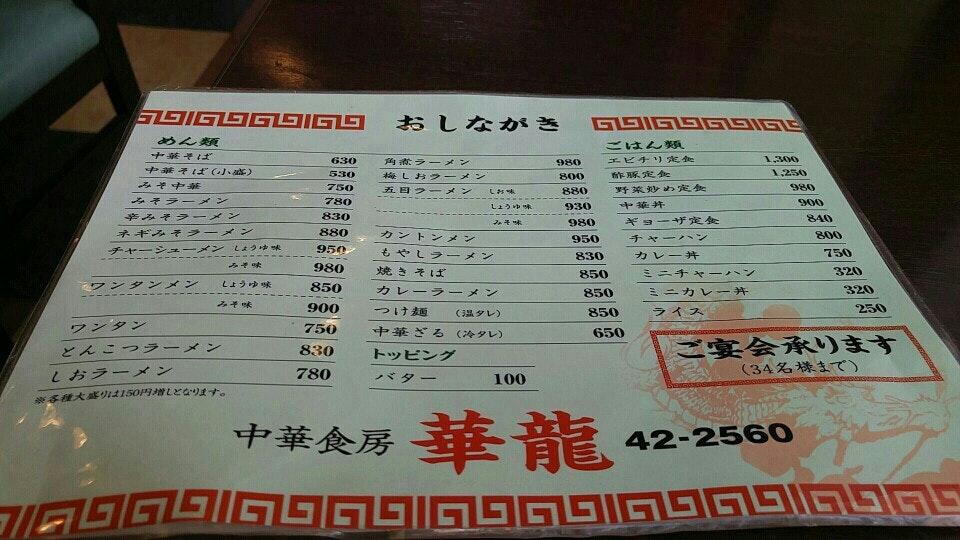 おしながき
めん類
中華そば 630
中華そば(小盛) 530
みそ中華 750
みそラーメン 780
辛みそラーメン 830
ネギみそラーメン 880
チャーシューメン しょうゆ味 950
みそ味 980
ワンタンメン しょうゆ味 850
みそ味 900
ワンタン 750
とんこつラーメン 830
しおラーメン 780
※各種大盛りは150円増しとなります。
角煮ラーメン 980
梅しおラーメン 800
五目ラーメン しお味 880
しょうゆ味 930
みそ味 980
カントンメン 950
もやしラーメン 830
焼きそば 850
カレーラーメン 850
つけ麺 (温タレ) 850
中華ざる (冷タレ) 650
トッピング
バター 100
ごはん類
エビチリ定食 1,300
酢豚定食 1,250
野菜炒め定食 980
中華丼 900
ギョーザ定食 840
チャーハン 800
カレー丼 750
ミニチャーハン 320
ミニカレー丼 320
ライス 250
ご宴会承ります
(34名様まで)
中華食房 華龍 42-2560